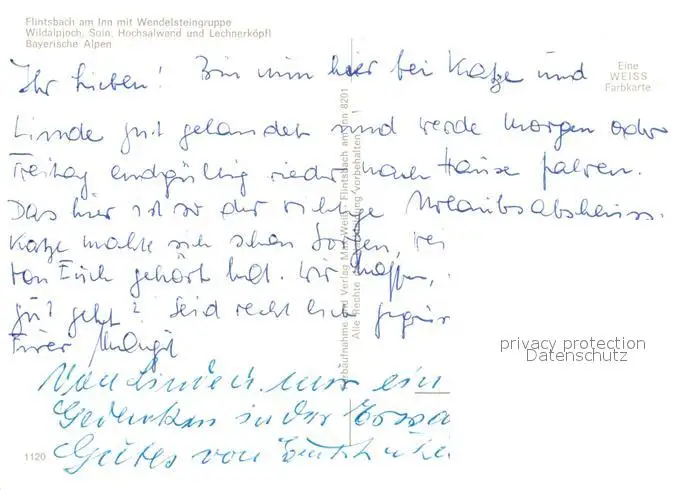 Flintsbach am Inn mit Wendelsteingruppe
Wildalpjoch, Soin, Hochsalwand und Lechnerköpfl
Bayerische Alpen
Eine
WEISS
Farbkarte
Ihr Lieben! Bin nun hier bei Katze und
Linde gut gelandet und werde morgen oder
Freitag endgültig wieder nach Hause fahren.
Das hier ist so der richtige Urlaubsabschluss.
Katze machte sich schon Sorgen,
von Euch gehört hat. Wir hoffen,
gut geht? Seid recht lieb
Eurer
ein
Gedenken in der
Gutes von
privacy protection
Datenschutz
1120
Verlag Max Weiß, Flintsbach am Inn 8201
Alle Rechte vorbehalten